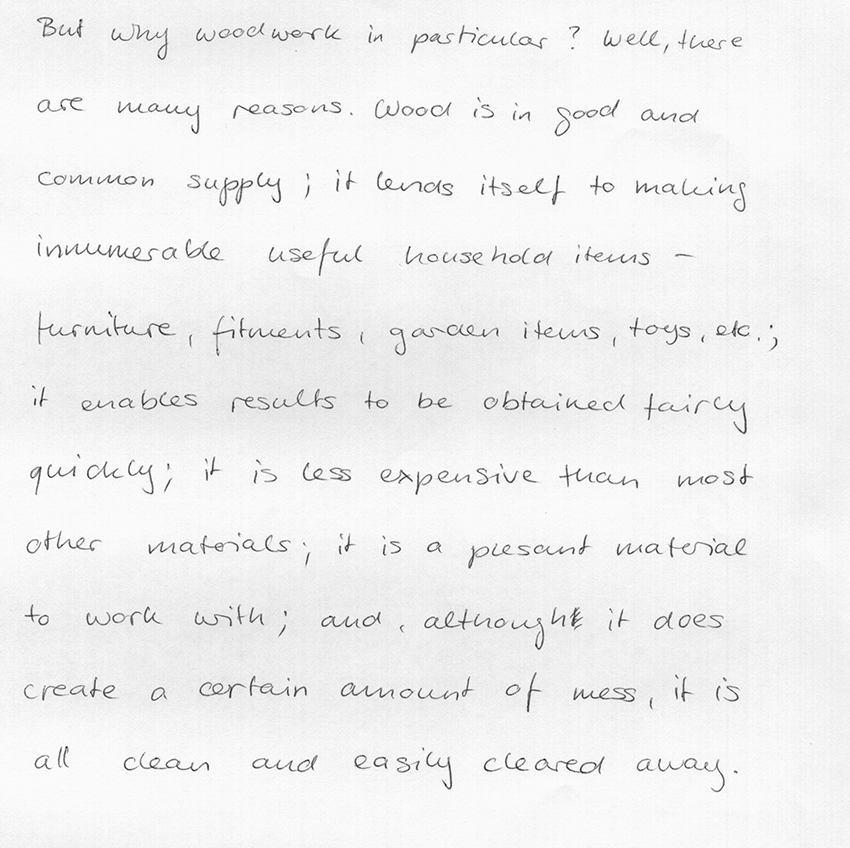 But why woodwork in particular? Well, there
are many reasons. Wood is in good and
common supply; it lends itself to making
innumerable useful household items -
furniture, fitments, garden items, toys, etc.;
it enables results to be obtained fairly
quickly; it is less expensive than most
other materials; it is a plesant material
to work with; and, althought it does
create a certain amount of mess, it is
all clean and easily cleared away.